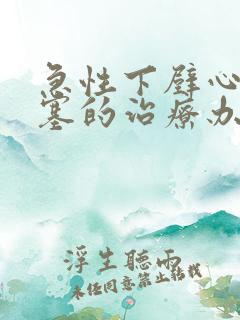 急性下壁心
塞的治療办
浮生聽雨
未经同意禁止转载